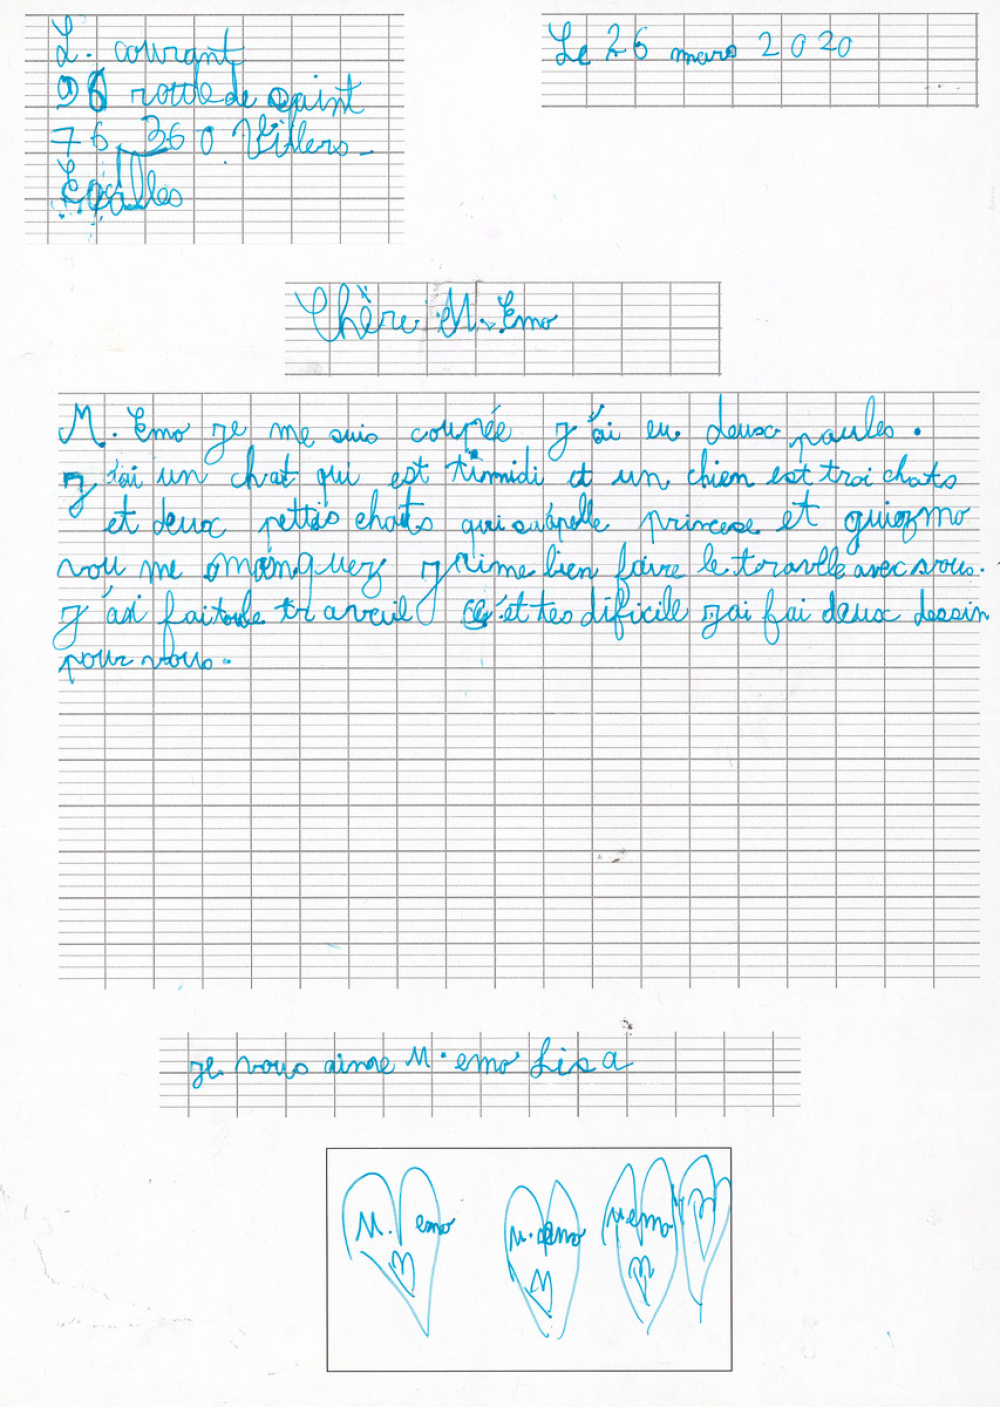 L. courant
96 route de saint
76 360 Villers-
Ecalles
Le 26 mars 2020
Chère M. Emo
M. Emo je me suis coupée j'ai eu deux paules.
j'ai un chat qui est timmidi et un chien est troi chats
et deux pettis chats qui suápelle princese et guiozmo
vou me manquez j'aime bien faire le travlle avec vous.
j'ai fait le traveil c'et tes dificile jai fai deux dessin
pour vous.
je vous aime M. emo Lisa
M. emo
M. emo
M emo